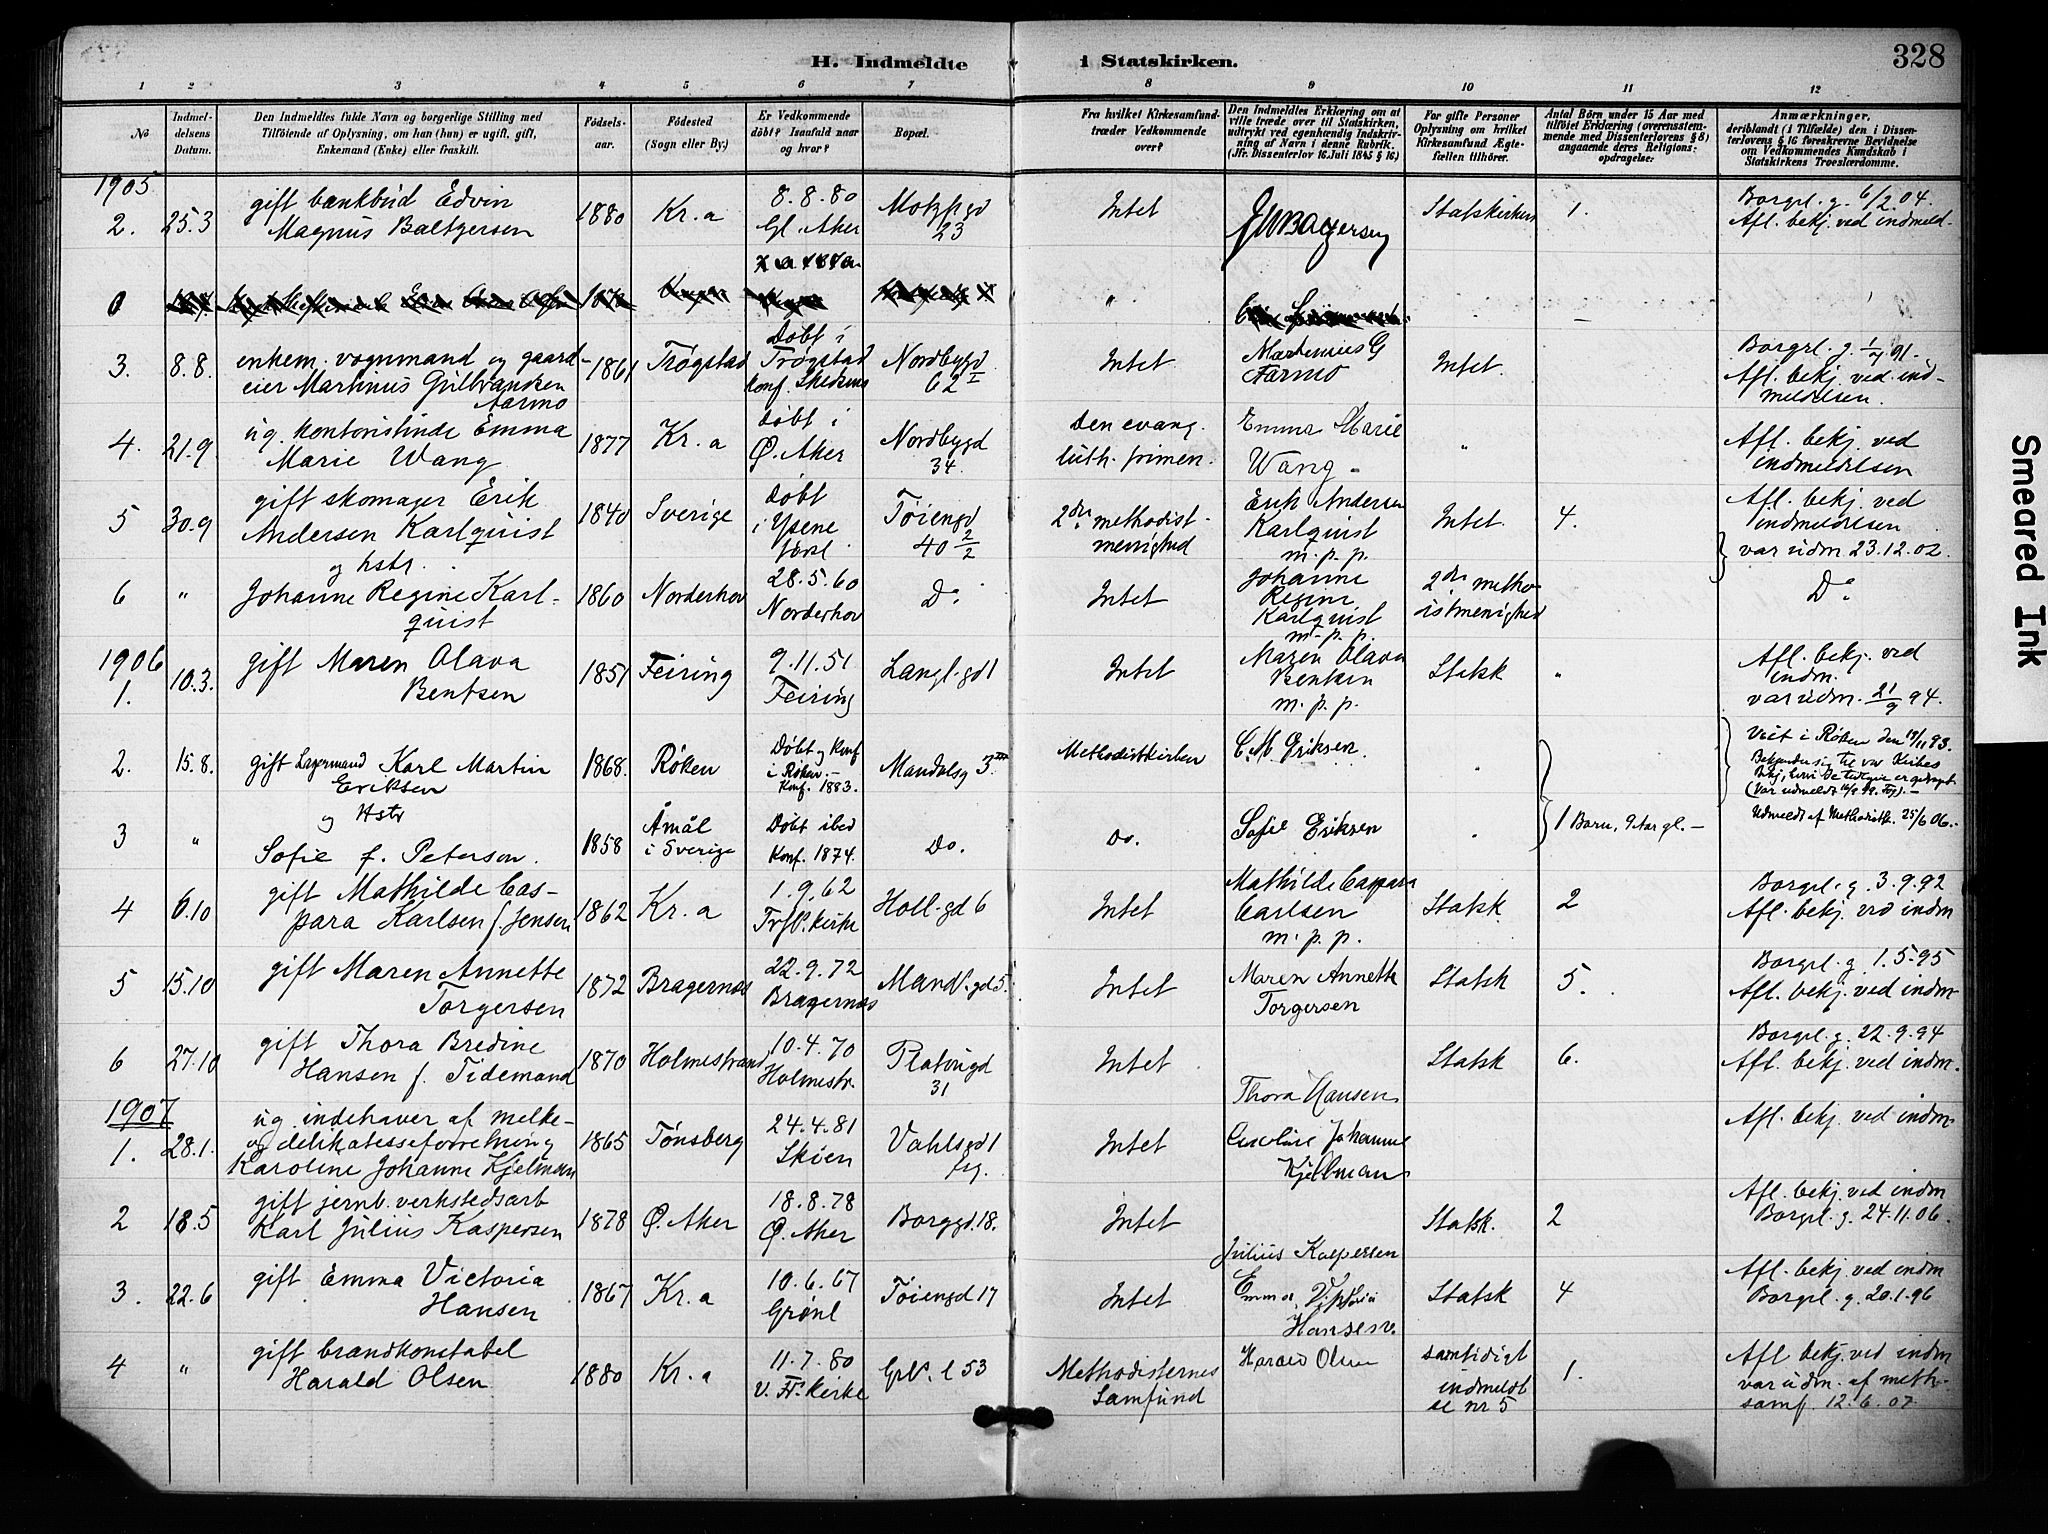 H. Indmeldte i Statskirken.
328
1 2 3 4 5 6 7 8 9 10 11 12
No
Indmel-
delsens
Datum.
Den Indmeldtes fulde Navn og borgerlige Stilling med
Tilföiende af Oplysning, om han (hun) er ugift, gift,
Enkemand (Enke) eller fraskilt.
Födsels-
aar.
Födested
(Sogn eller By.)
Er Vedkommende
döbt? Isaafald naar
og hvor?
Bopæl.
Fra hvilket Kirkesamfund
træder Vedkommende
over?
Den Indmeldtes Erklæring om at
ville træde over til Statskirken,
udtrykt ved egenhændig Indskriv-
ning af Navn i denne Rubrik.
(Jfr. Dissenterlov 16. Juli 1845 § 16)
For gifte Personer
Oplysning om hvilket
Kirkesamfund Ægte-
fællen tilhörer.
Antal Börn under 15 Aar med
tilföiet Erklæring (overensstem-
mende med Dissenterlovens § 8)
angaaende deres Religions-
opdragelse:
Anmærkninger,
deriblandt (i Tilfælde) den i Dissen-
terlovens § 16 foreskrevne Bevidnelse
om Vedkommendes Kundskab i
Statskirkens Troeslærdomme.
1905
2. 25.3 gift bankbud Edvin
Magnus Baltzersen
1880 Kr.a
8.8.80
Gl. Aker
Motzfgd
23
Intet
Statskirken 1.
Borgrl. g. 6/2.04.
Afl. bekj. ved indmeld-
0
3. 8.8. enkem. vognmand og gaard-
eier Martinus Gulbrandsen
Aarmo
1861 Trøgstad
Døbt i
Trøgstad
konf.
Nordbygd
62 I
Intet
Intet.
Borgrl. g. 1/7 91.
Afl. bekj. ved ind-
meldelsen.
4. 21.9 ug. kontoristinde Emma
Marie Wang
1877 Kr.a
døbt i
Ø. Aker
Nordbygd
34.
Den evang.
luth. frimen.
Emma Marie
Wang -
"
Afl. bekj. ved
indmeldelsen
5 30.9 gift skomager Erik
Andersen Karlquist
og hstr.
1840 Sverige
døbt
i Ysene
Tøiengd
40 2/2
2den methodist-
menighed
Erik Andersen
Karlquist
m.p.p.
Intet. 4.
Afl. bekj. ved
indmeldelsen
var udm. 23.12.02.
6 " Johanne Regine Karl-
quist
1860 Norderhov
28.5.60
Norderhov
Do
Intet
Johanne
Regine
Karlquist
m.p.p.
2den metho-
istmenighed
Do
1906
1. 10.3. gift Maren Olava
Bentsen
1851 Feiring
9.11.51
Feiring
Langl. gd 1
Intet
Maren Olava
Bentsen
m.p.p.
Statsk "
Afl. bekj. ved
indm.
var udm. 21/9 94.
2. 15.8. gift Lagermand Karl Martin
Eriksen
og Hstr
1868. Røken
Døbt og Konf
i Røken -
Konf. 1883.
Mandalsg 3
Methodistkirken
C. M. Eriksen.
"
Viet i Røken den 19/11 93.
3 " Sofie f. Peterson.
1858 Åmål
i Sverige
Døbt ibid
Konf. 1874.
Do.
Do.
Sofie Eriksen
"
1 Barn, 9 Aar gl. -
Udmeldt af Methodistk. 25/6 06.-
4 6.10 gift Mathilde Cas-
para Karlsen f. Jensen
1862 Kr.a
1.9.62
Tref. kirke
Holl. gd 6
Intet
Mathilde Caspara
Carlsen
m.p.p.
Statsk 2
Borgrl. g. 3.9.92
Afl. bekj. ved indm
5 15.10 gift Maren Annette
Torgersen
1872 Bragernæs
22.9.72
Bragernæs
Mandl. gd 5.
Intet
Maren Annette
Torgersen
Statsk 5.
Borgrl. g. 1.5.95
Afl. bekj. ved indm
6 27.10 gift Thora Bredine
Hansen f. Tidemand
1870 Holmestrand
10.4.70
Holmestr.
Platougd
31
Intet
Thora Hansen
Statsk 6.
Borgrl. g. 22.9.94
Afl. bekj. ved indm.
1907
1. 28.1. ug. indehaver af melke-
og delikatesseforretning
Karoline Johanne Kjelman
1865 Tønsberg
24.4.81
Skien
Vahlsgd 1
Intet
Caroline Johanne
Kjellman
Afl. bekj. ved indm
2 18.5 gift jernb. verkstedsarb
Karl Julius Kaspersen
1878 Ø. Aker
18.8.78
Ø. Aker
Borggd. 18.
Intet
Julius Kaspersen
Statsk. 2
Afl. bekj. ved indm
Borgrl. g. 24.11.06.
3. 22.6 gift Emma Victoria
Hansen
1867 Kr.a
10.6.67
Grønl
Tøiengd 17
Intet
Emma Viktoria
Hansen.
Statsk 4
Afl. bekj. ved indm
Borgrl. g. 20.1.96
4 " gift brandkonstabel
Harald Olsen
1880 Kr.a
11.7.80
V. Fr. kirke
Grl. l 53
Methodisternes
Samfund
Harald Olsen
samtidigt
indmeldt
se nr 5
1.
Afl bekj. ved indm
var udm. af meth-
samf. 12.6.07
Smeared Ink